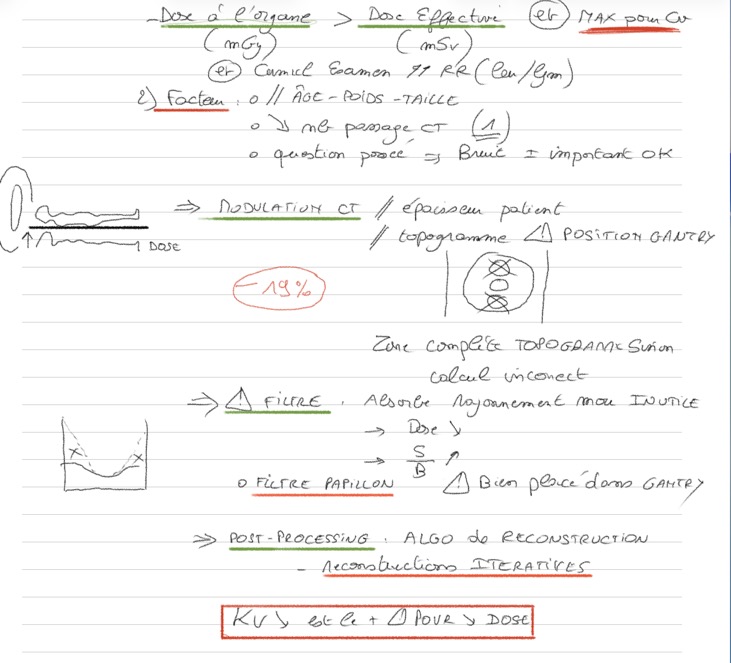 - Dose à l'organe > Dose Effective (et) MAX pour Cv
(mGy) (mSv)
(et) Cumul Examen ↑↑ RR (leu/Gm)
2) Facteur : o // ÂGE - POIDS - TAILLE
o ↘ nb passage CT (1)
o question posée => Bruit ± important OK
⇒ MODULATION CT // épaisseur patient
DOSE // topogramme ⚠ POSITION GANTRY
- 19%
Zone complète TOPOGRAMME Sinon
calcul incorrect
⇒ ⚠ FILTRE . Absorbe rayonnement mou INUTILE
→ Dose ↘
→ S/B ↗
o FILTRE PAPILLON ⚠ Bien placé dans GANTRY
⇒ POST-PROCESSING . ALGO de RECONSTRUCTION
- reconstructions ITERATIVES
KV ↘ est le + △ POUR ↘ DOSE